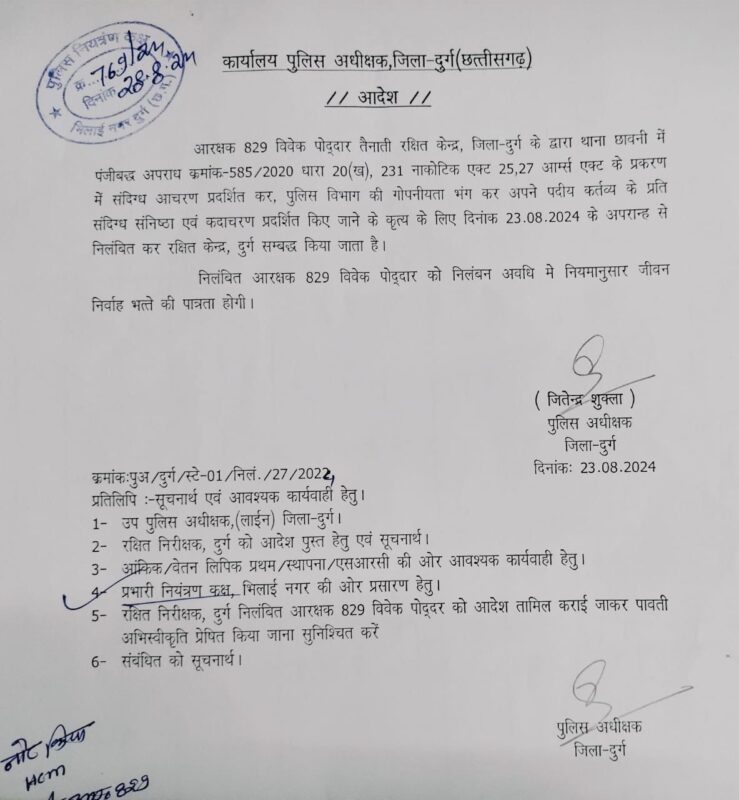 पुलिस नियंत्रण कक्ष
क्र...769/24
दिनांक 28.8.24
भिलाई नगर दुर्ग (छ.ग.)
कार्यालय पुलिस अधीक्षक,जिला-दुर्ग(छत्तीसगढ़)
// आदेश //
आरक्षक 829 विवेक पोद्दार तैनाती रक्षित केन्द्र, जिला-दुर्ग के द्वारा थाना छावनी में
पंजीबद्ध अपराध क्रमांक-585/2020 धारा 20(ख), 231 नाकोटिक एक्ट 25,27 आर्म्स एक्ट के प्रकरण
में संदिग्ध आचरण प्रदर्शित कर, पुलिस विभाग की गोपनीयता भंग कर अपने पदीय कर्तव्य के प्रति
संदिग्ध संनिष्ठा एवं कदाचरण प्रदर्शित किए जाने के कृत्य के लिए दिनांक 23.08.2024 के अपरान्ह से
निलंबित कर रक्षित केन्द्र, दुर्ग सम्बद्ध किया जाता है।
निलंबित आरक्षक 829 विवेक पोद्दार को निलंबन अवधि मे नियमानुसार जीवन
निर्वाह भत्ते की पात्रता होगी।
( जितेन्द्र शुक्ला )
पुलिस अधीक्षक
जिला-दुर्ग
दिनांकः 23.08.2024
क्रमांकःपुअ/दुर्ग/स्टे-01/निलं./27/2024
प्रतिलिपि :-सूचनार्थ एवं आवश्यक कार्यवाही हेतु।
1- उप पुलिस अधीक्षक,(लाईन) जिला-दुर्ग।
2- रक्षित निरीक्षक, दुर्ग को आदेश पुस्त हेतु एवं सूचनार्थ।
3- आंकिक/वेतन लिपिक प्रथम/स्थापना/एसआरसी की ओर आवश्यक कार्यवाही हेतु।
4- प्रभारी नियंत्रण कक्ष, भिलाई नगर की ओर प्रसारण हेतु।
5- रक्षित निरीक्षक, दुर्ग निलंबित आरक्षक 829 विवेक पोद्दर को आदेश तामिल कराई जाकर पावती
अभिस्वीकृति प्रेषित किया जाना सुनिश्चित करें
6- संबंधित को सूचनार्थ।
पुलिस अधीक्षक
जिला-दुर्ग
नोट किया
HCM
829